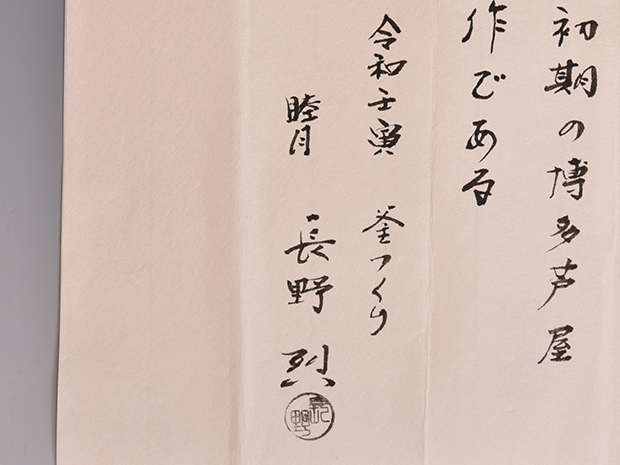 初期の博多芦屋
作である
令和壬寅 釜つくり
睦月 長野 烈